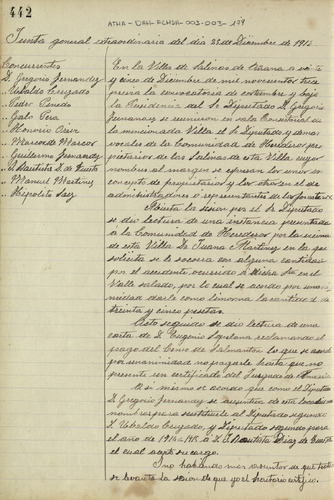 442
ATHA-DAH-ECHSA-003-003-139
Junta general extraordinaria del dia 25 de Diciembre de 1913
Concurrentes
D. Gregorio Fernandez
" Ubaldo Cruzado
" Pedro
" Galo
" Honorio
" Marcos de Marcos
" Guillermo Fernandez
" Bautista D. de
" Manuel Martinez
" Hipolito Saez
En la Villa de Salinas de Añana a veinte
y cinco de Diciembre de mil novecientos trece
previa la convocatoria de costumbre y bajo
la Presidencia del Sr Diputado D. Gregorio
Fernandez se reunieron en sala Consistorial de
la mencionada Villa el Sr Diputado y demas
vocales de la Comunidad de Herederos pro-
pietarios de las Salinas de esta Villa cuyos
nombres al margen se espresan los unos en
concepto de propietarios y los otros en el de
admi
Abierta la sesion por el Sr Diputado
se dio lectura de una instancia presentada
á la Comunidad de Herederos por la vecina
de esta Villa Dª Juana Martinez en la que
solicita se la socorra con alguna cantidad
por el accidente ocurrido á dicha Sra en el
Valle salado, por lo cual se acordó por una-
nimidad darle como limosna la cantidad de
treinta y cinco pesetas.
Acto seguido se dio lectura de una
carta de D. Eugenio reclamando el
pago del Censo de lo que se acordó
por unanimidad no pagarle hasta que no
presente un certificado del Juzgado de
A si mismo se acordó que como el Diputado
D. Gregorio Fernandez se ausentaba de esta localidad
nombrar para sustituirle al Diputado segundo
D. Ubaldo Cruzado, y Diputado segundo para
el año de 1914 á D. Bautista Diaz de
el cual aceptó su cargo.
Y no habiendo mas asuntos de que tratar
se levantó la sesion de que yo el Secretario certifico.